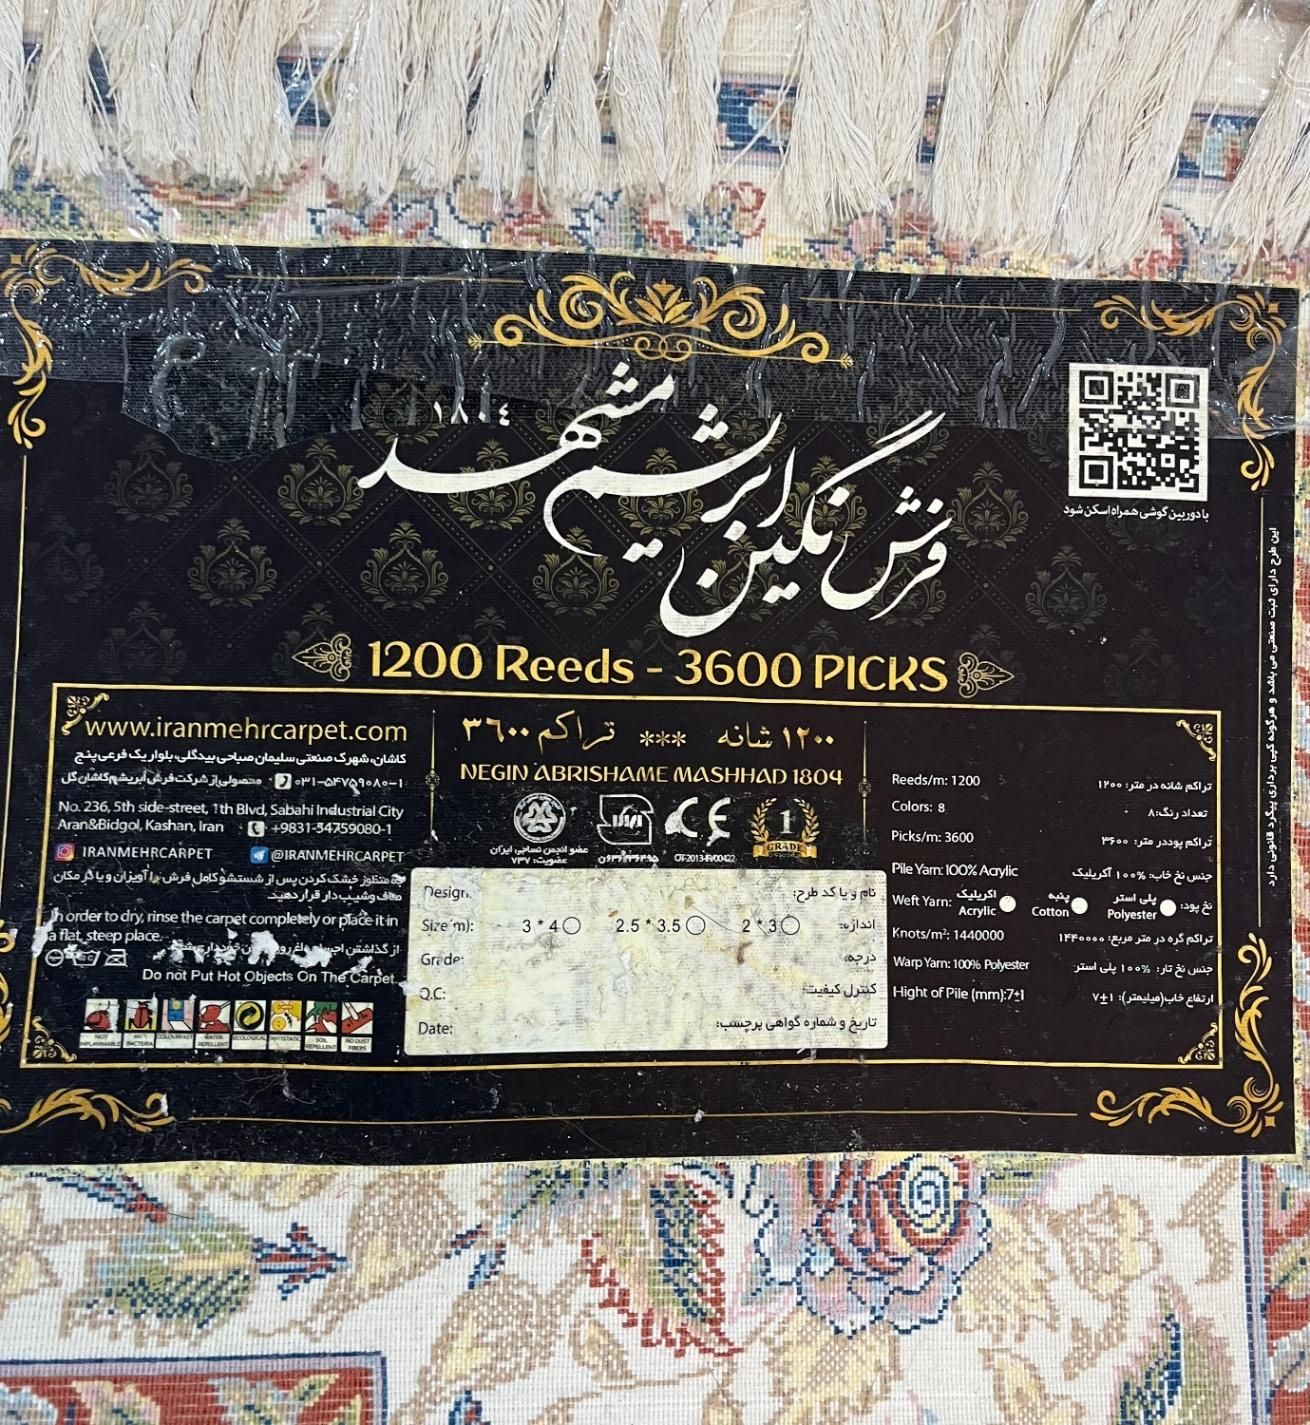 ۱۸۰٤
فرش نگین ابریشم مشهد
با دوربین گوشی همراه اسکن شود
این طرح دارای ثبت صنعتی می باشد و هرگونه کپی برداری پیگرد قانونی دارد
1200 Reeds - 3600 PICKS
www.iranmehrcarpet.com
کاشان، شهرک صنعتی سلیمان صباحی بیدگلی، بلوار یک فرعی پنج
۰۳۱-۵۴۷۵۹۰۸۰-۱ محصولی از شرکت فرش ابریشم کاشان گل
No. 236, 5th side-street, 1th Blvd, Sabahi Industrial City
Aran&Bidgol, Kashan, Iran +9831-54759080-1
IRANMEHRCARPET @IRANMEHRCARPET
به منظور خشک کردن پس از شستشو کامل فرش را آویزان و یا در مکان
صاف و شیب دار قرار دهید.
In order to dry, rinse the carpet completely or place it in
a flat, steep place.
از گذاشتن
Do not Put Hot Objects On The Carpet.
NOT INFLAMMABLE
ANTI BACTERIA
COLOURFAST
WATER REPELLENT
ECOLOGICAL
ANTISTATIC
SOIL REPELLENT
NO DUST FIBERS
۱۲۰۰ شانه *** تراکم ۳٦۰۰
NEGIN ABRISHAME MASHHAD 1804
عضو انجمن نساجی ایران
عضویت: ۷۳۷
CE
1
GRADE
Design. نام و یا کد طرح:
Size(m): 3 * 4 2.5 * 3.5 2 * 3 اندازه:
Grade: درجه:
Q.C: کنترل کیفیت:
Date: تاریخ و شماره گواهی برچسب:
Reeds/m: 1200 تراکم شانه در متر: ۱۲۰۰
Colors: 8 تعداد رنگ: ۸
Picks/m: 3600 تراکم پود در متر: ۳۶۰۰
Pile Yarn: 100% Acrylic جنس نخ خاب: ۱۰۰% آکریلیک
Weft Yarn: اکریلیک Acrylic پنبه Cotton پلی استر Polyester نخ پود:
Knots/m²: 1440000 تراکم گره در متر مربع: ۱۴۴۰۰۰۰
Warp Yarn: 100% Polyester جنس نخ تار: ۱۰۰% پلی استر
Hight of Pile (mm):7±1 ارتفاع خاب(میلیمتر): ۷±۱